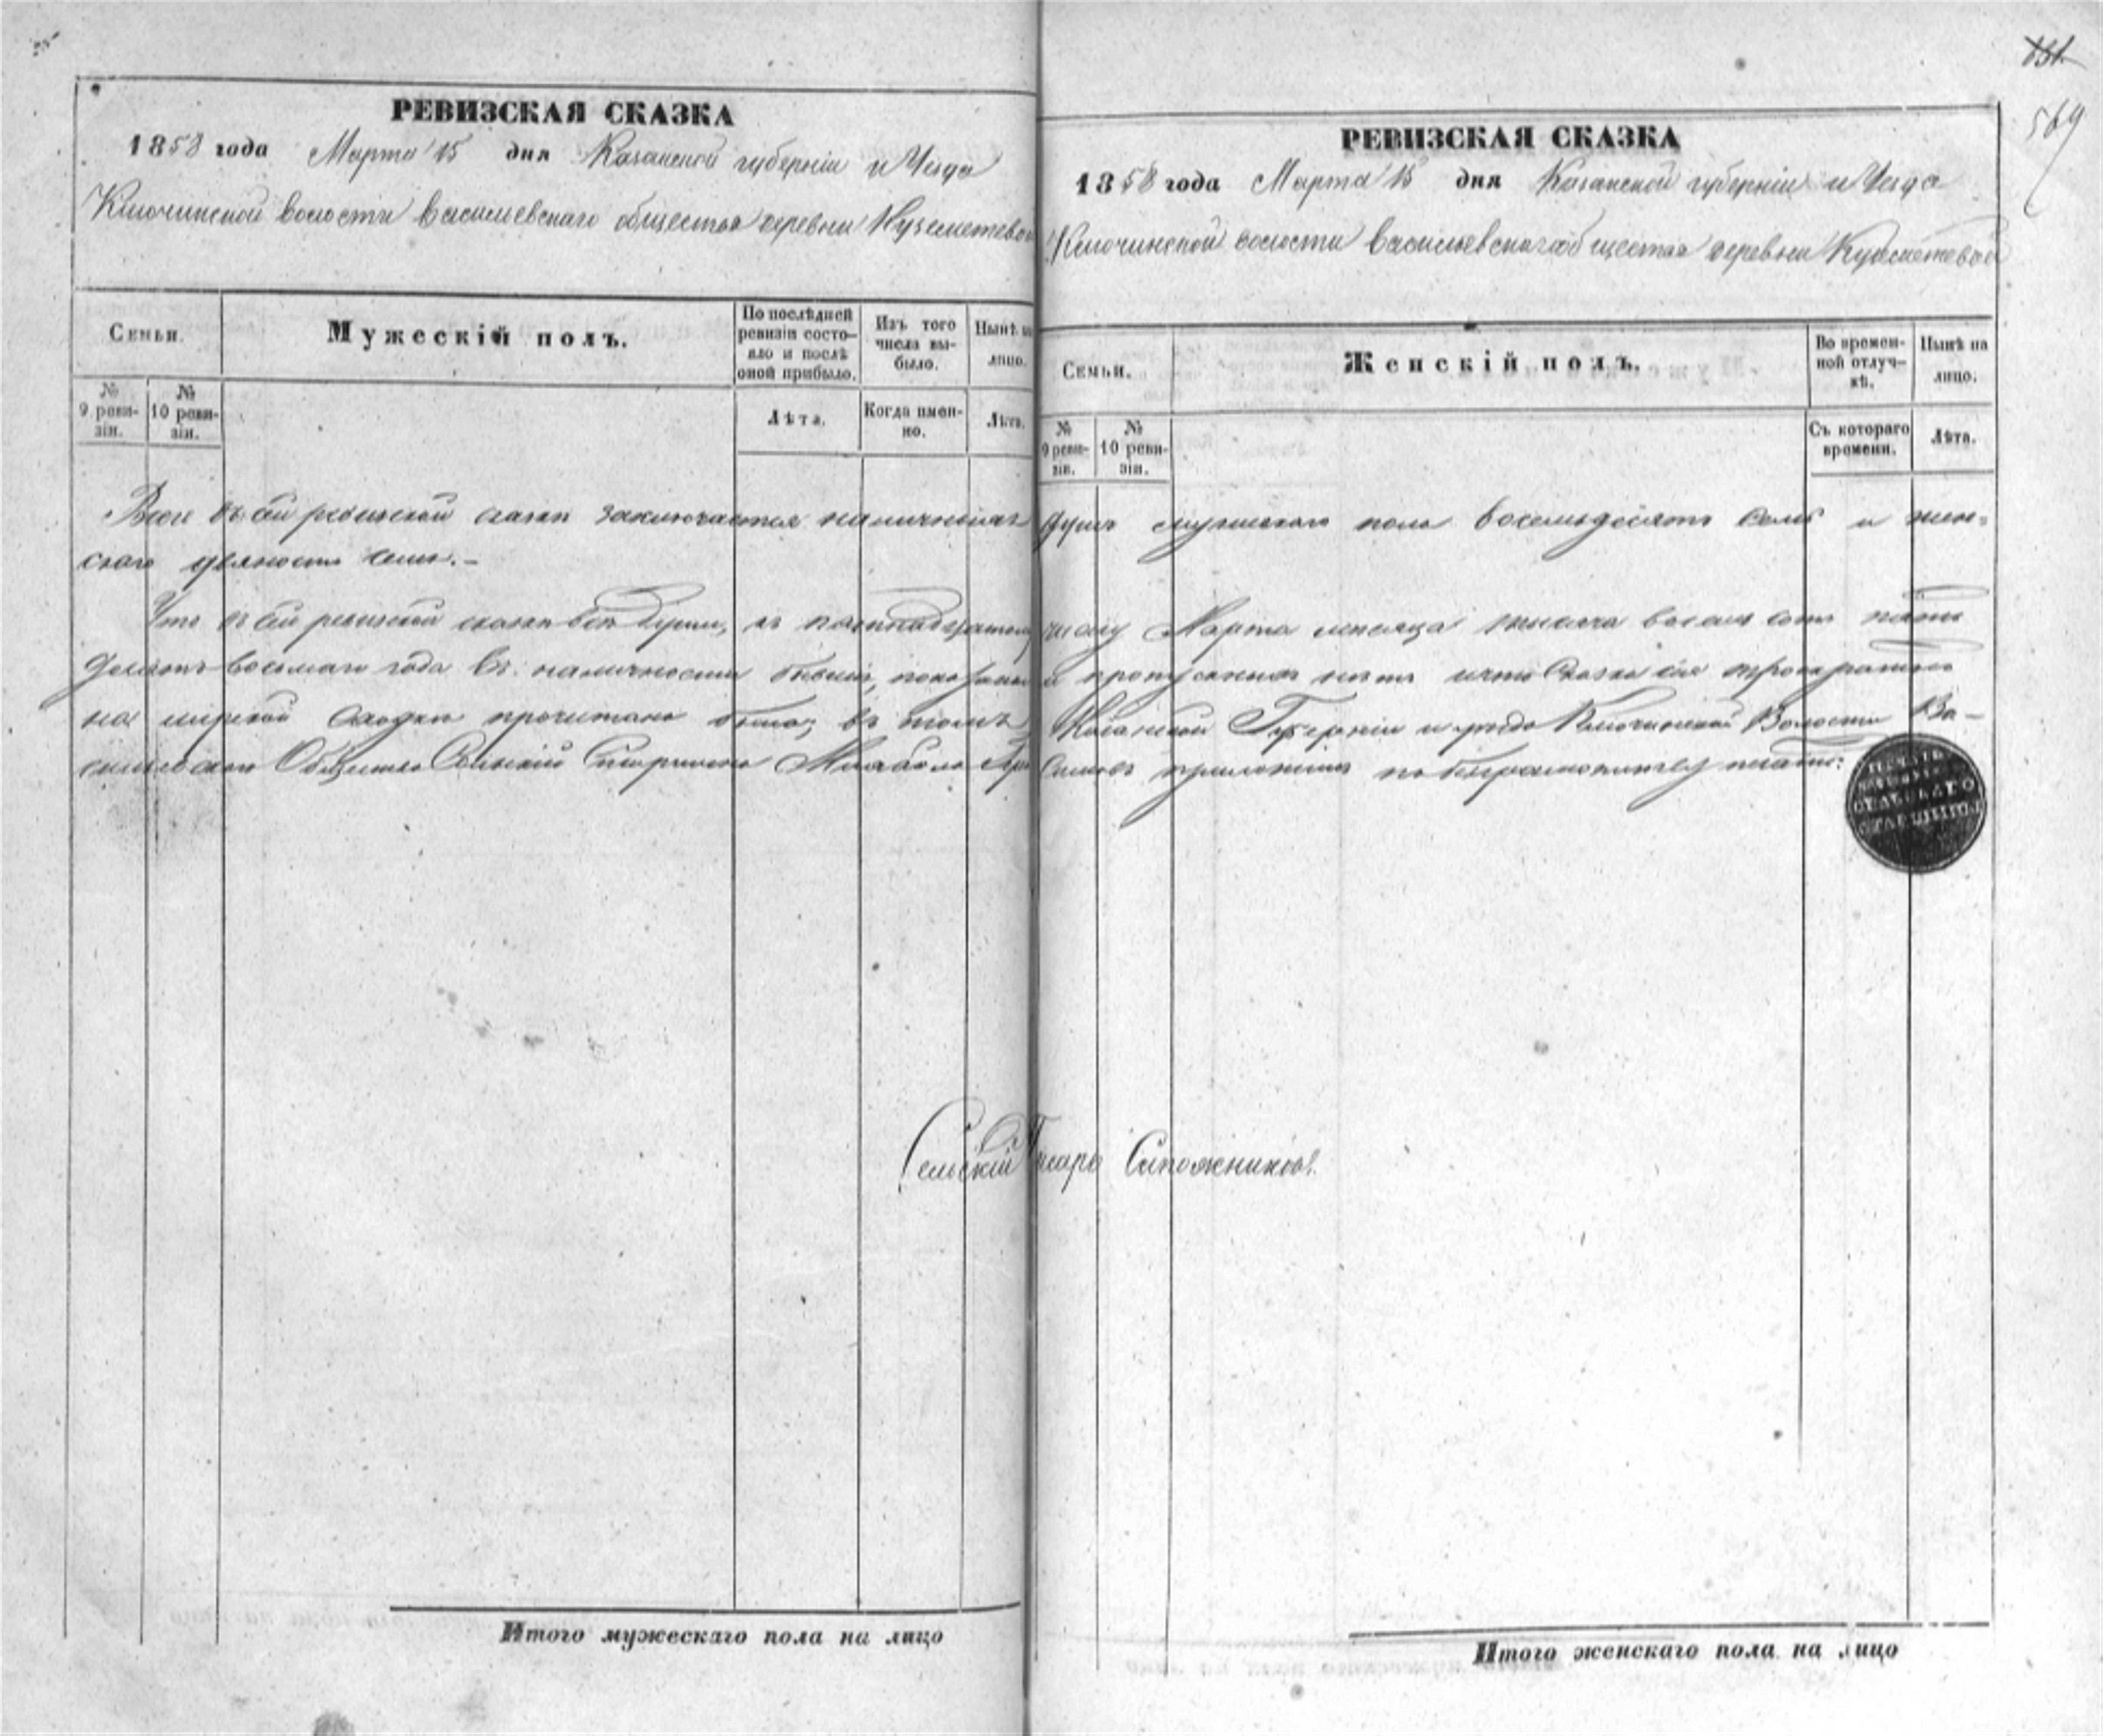 РЕВИЗСКАЯ СКАЗКА
1858 года Марта 15 дня Казанской губерніи и Уезда
Ключинской волости Васильевскаго общества деревни Куземетевой
Семьи.
Мужескій полъ.
По послѣдней ревизіи состояло и послѣ оной прибыло.
Изъ того числа выбыло.
Нынѣ на лицо.
№ 9 ревизіи.
№ 10 ревизіи.
Лѣта.
Когда именно.
Лѣта.
631
569
РЕВИЗСКАЯ СКАЗКА
1858 года Марта 15 дня Казанской губерніи и Уезда
Ключинской волости Васильевскаго общества деревни
Семьи.
Женскій полъ.
Во временной отлучкѣ.
Нынѣ на лицо.
№ 9 ревизіи.
№ 10 ревизіи.
Съ котораго времени.
Лѣта.
Всего въ сей ревизской сказки заключается наличныхъ душъ мужескаго пола восемьдесятъ семь и жен-
скаго девяносто семь.-
Что въ сей ревизской сказки все души, къ пятнадцатому числу Марта месяца тысяча восемь сотъ пять
десятъ восьмаго года въ наличности бывшія, показаны и пропущенныхъ нетъ и что сказка сія троекратно
на мирской сходки прочитана была, въ томъ Казанской Губерніи и уезда Ключинской Волости Ва-
сильевскаго Общества Сельскій Старшина приложилъ по безграмотству печать:
ПЕЧАТЬ
СЕЛЬСКАГО
СТАРШИНЫ
Сельскій Писарь Сапожниковъ.
Итого мужескаго пола на лицо
Итого женскаго пола на лицо